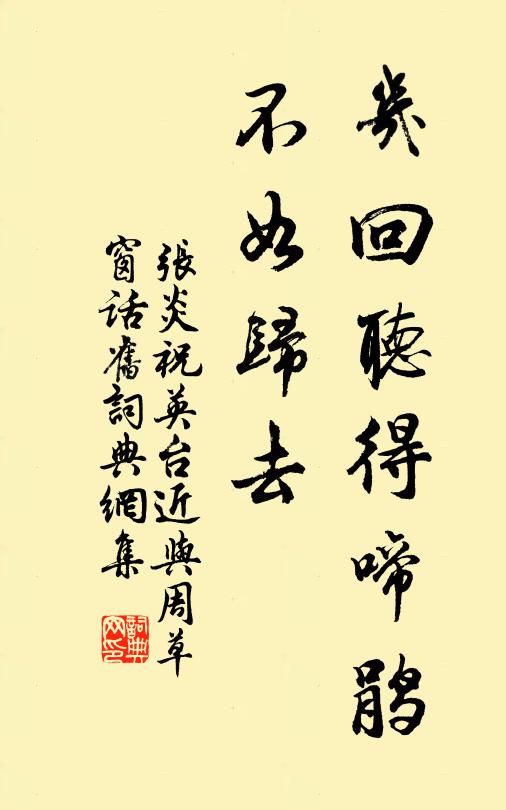 幾回聽得啼鵑
不如歸去
張炎祝英台近與周草
窗話舊詞典網集
詞典
网印